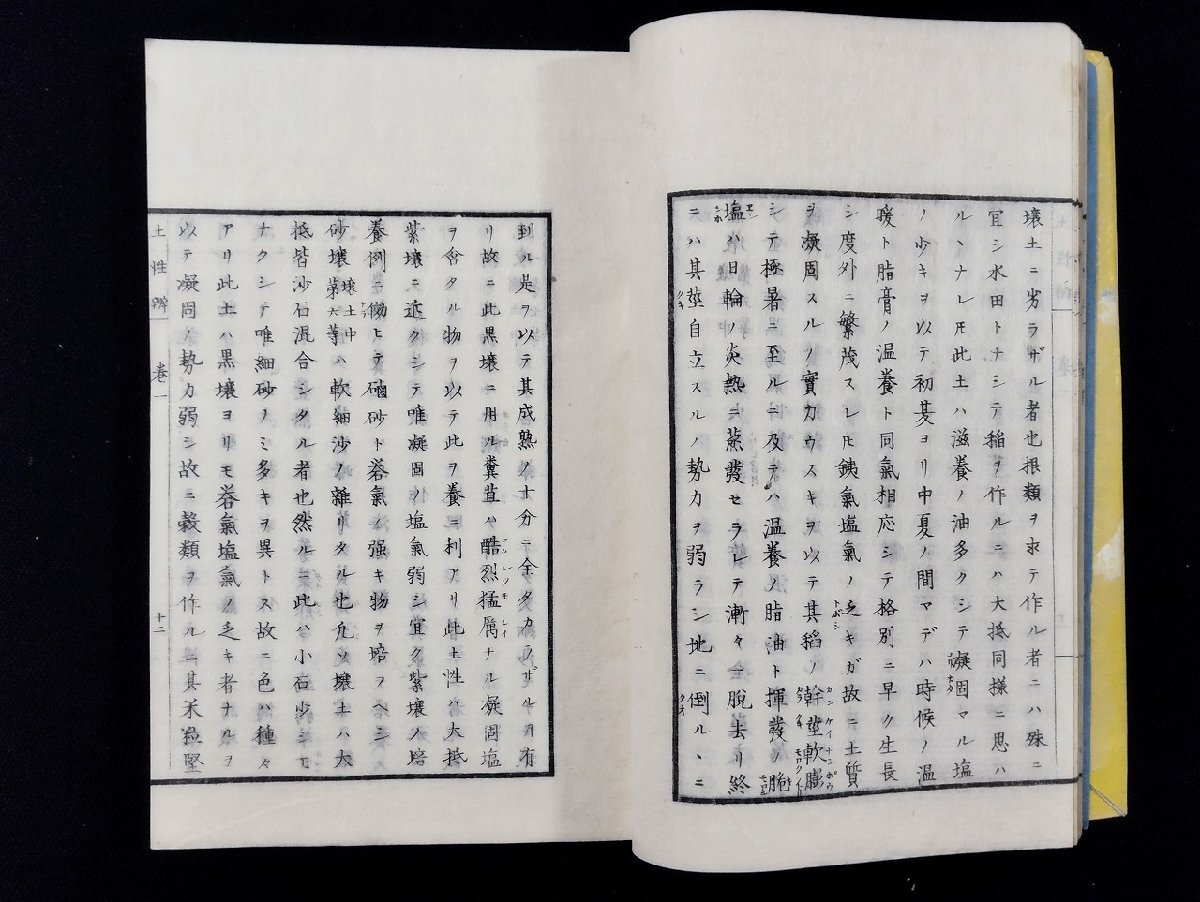 壤土ニ劣ラザル者也根類ヲ求テ作ル者ニハ殊ニ
宜シ水田トナシテ稲ヲ作ルニハ大抵同様ニ思ハ
ルヽナレ𪜈此土ハ滋養ノ油多クシテ凝固マル塩
ノ少キヲ以テ初夏ヨリ中夏ノ間マデハ時候ノ温
暖ト脂膏ノ温養ト同氣相応シテ格別ニ早ク生長
シ度外ニ繁茂スレ𪜈銕氣塩氣ノ乏キガ故ニ土質
ヲ凝固スルノ實力ウスキヲ以テ其稲ノ幹莖軟膨
シテ極暑ニ至ルニ及テハ温養ノ脂油ト揮發ノ脆
塩ハ日輪ノ炎熱ニ蒸發セラレテ漸々ニ脱去リ終
ニハ其莖自立スルノ勢力ヲ弱ラシ地ニ倒ルヽニ
到ル是ヲ以テ其成熟ノ十分ニ全タカラザルヿ有
リ故ニ此黒壤ニ用ル糞苴ハ酷烈猛厲ナル凝固塩
ヲ含タル物ヲ以テ此ヲ養ニ利アリ此土性ハ大抵
紫壤ニ近クシテ唯凝固ノ塩氣弱シ宜ク紫壤ノ培
養例ニ傚ヒテ硇砂ト喦氣ノ强キ物ヲ培フヘシ
砂壤壤土中第六等ハ軟細沙ノ雜リタル也凡ソ壤土ハ大
抵皆沙石混合シタル者也然ルニ此ハ小石少シモ
ナクシテ唯細砂ノミ多キヲ異トス故ニ色ハ種々
アリ此土ハ黒壤ヨリモ喦氣塩氣ノ乏キ者ナルヲ
以テ凝固ノ勢力弱シ故ニ穀類ヲ作ルニ其禾粒堅
土性辨 巻一 十二